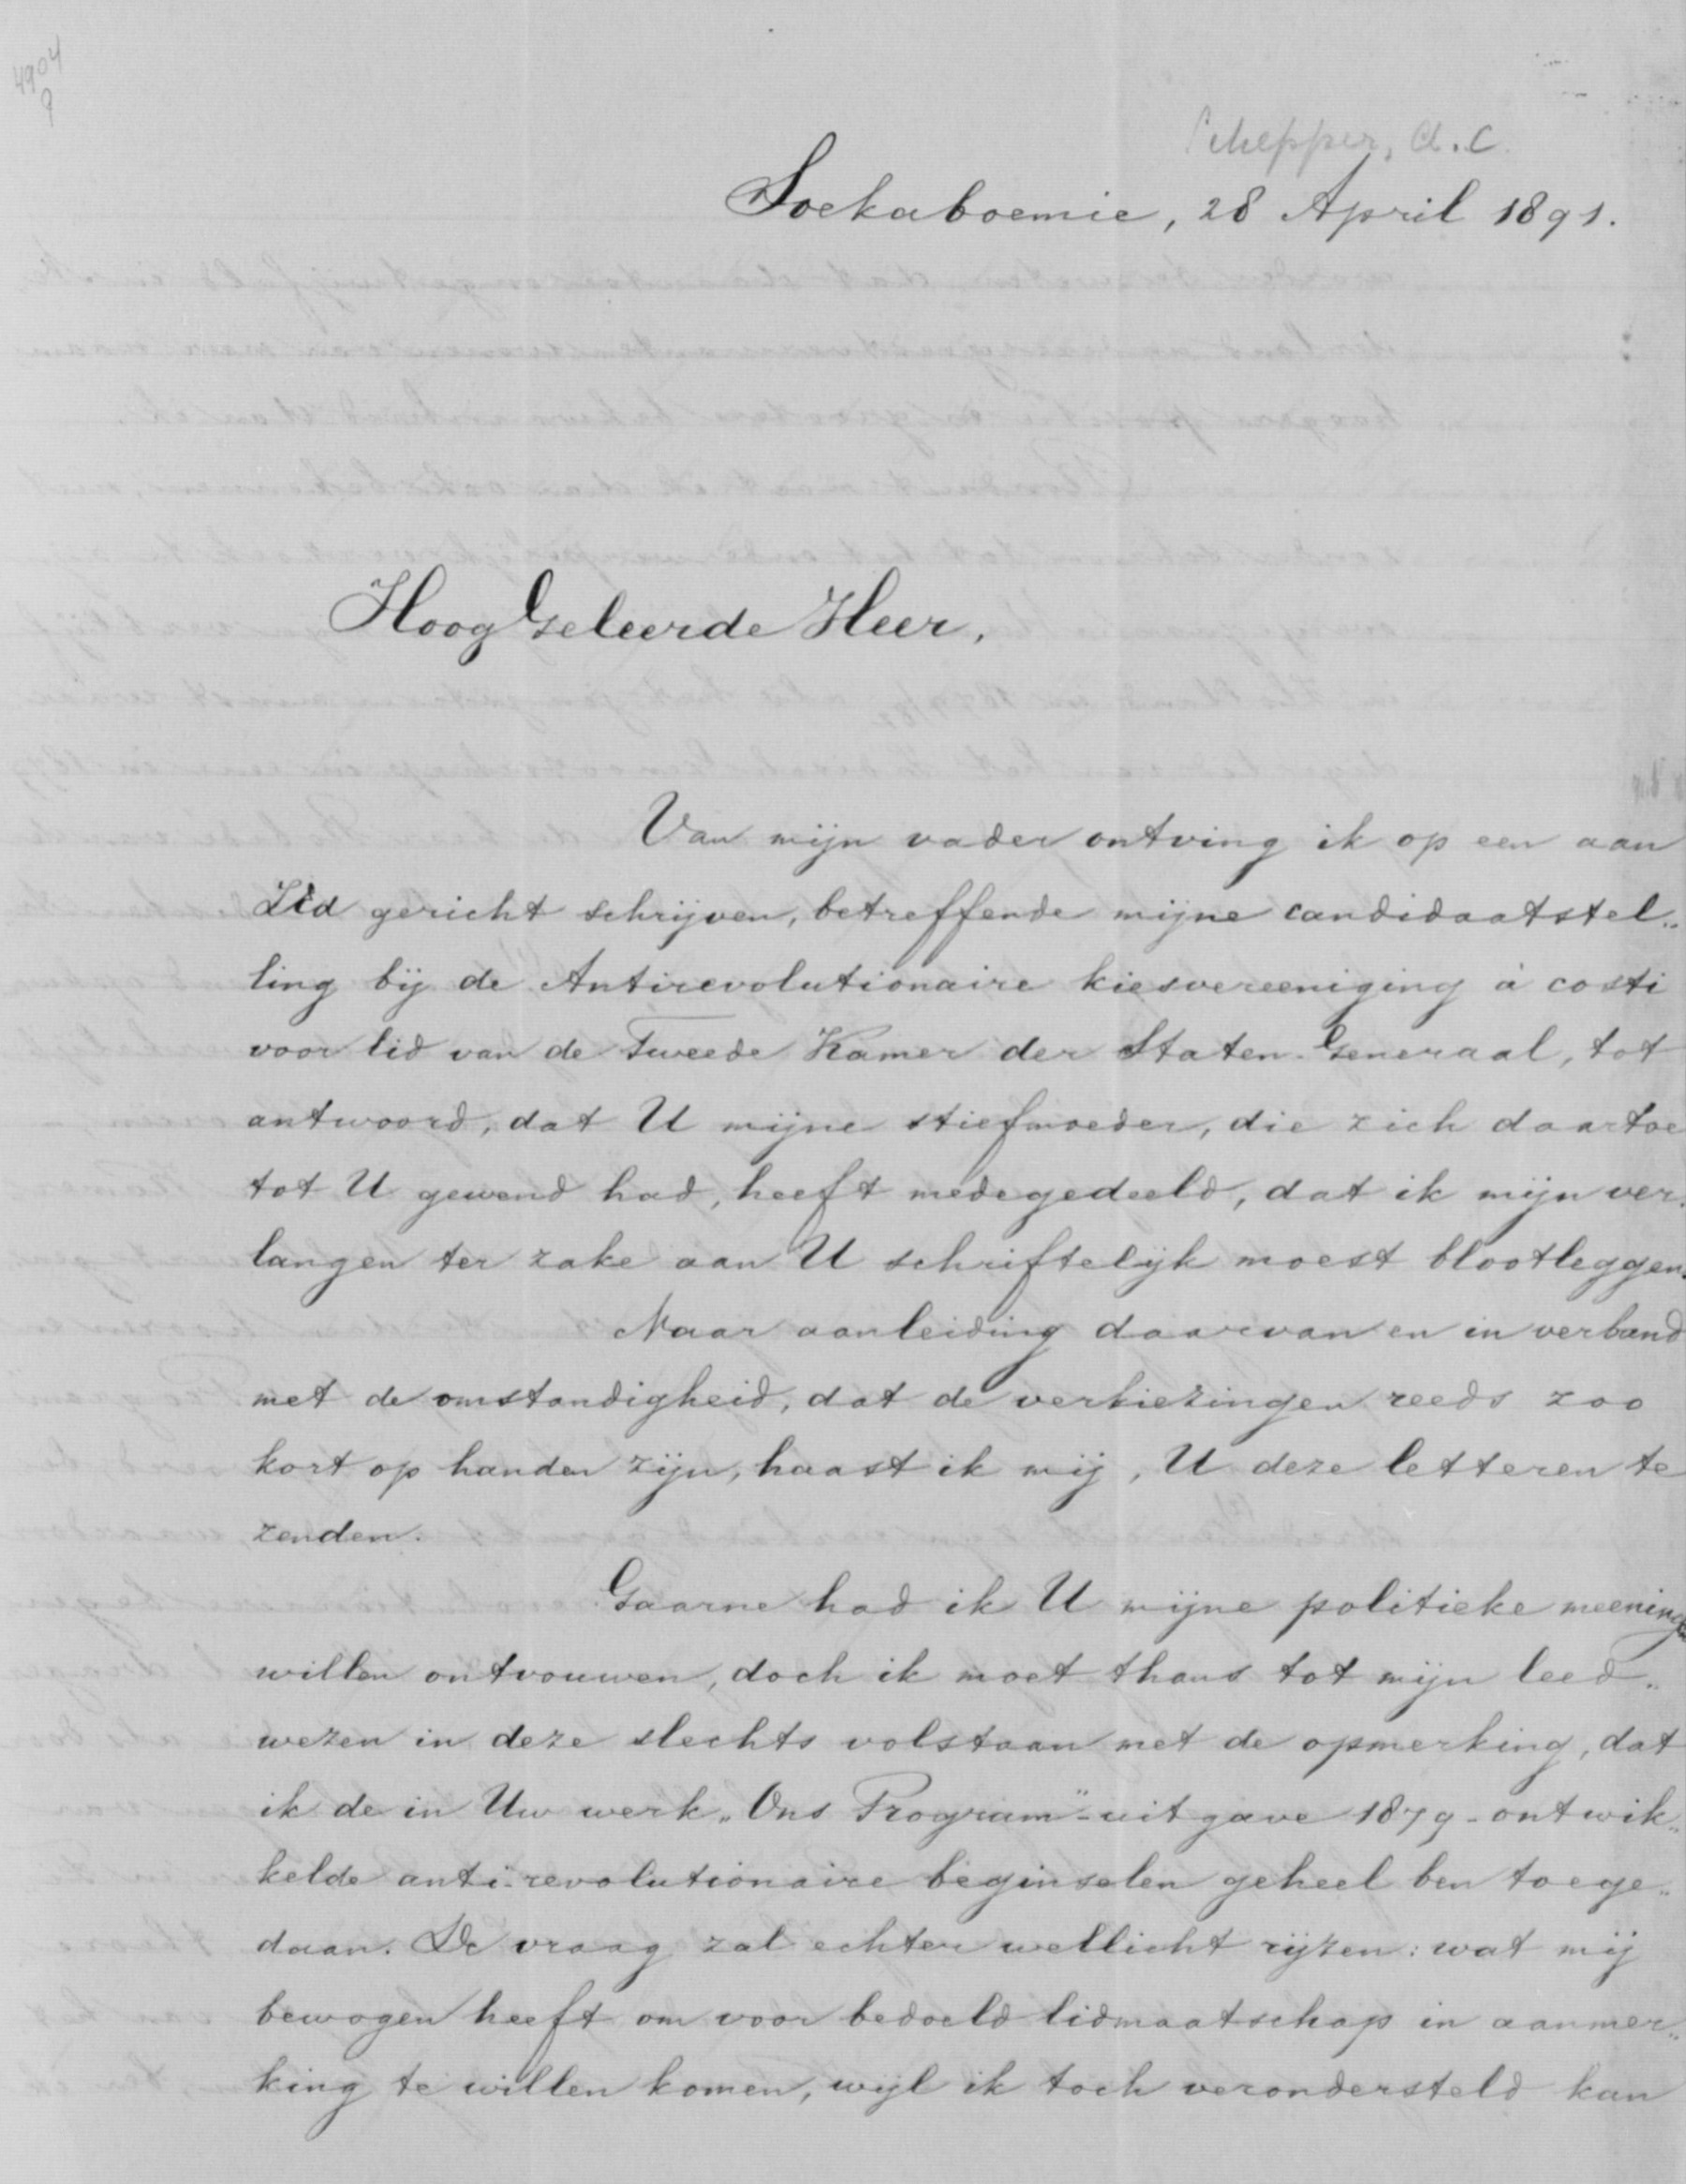 4904
9
Schepper, A.C.
Soekaboemie, 28 April 1891.
HoogGeleerde Heer,
Van mijn vader ontving ik op een aan
ZEd gericht schrijven, betreffende mijne candidaatstel„
ling bij de Antirevolutionaire kiesvereeniging à costi
voor lid van de Tweede Kamer der Staten-Generaal, tot
antwoord, dat U mijne stiefmoeder, die zich daartoe
tot U gewend had, heeft medegedeeld, dat ik mijn ver„
langen ter zake aan U schriftelijk moest blootleggen.
Naar aanleiding daarvan en in verband
met de omstandigheid, dat de verkiezingen reeds zoo
kort op handen zijn, haast ik mij, U deze letteren te
zenden.
Gaarne had ik U mijne politieke meeningen
willen ontvouwen, doch ik moet thans tot mijn leed„
wezen in deze slechts volstaan met de opmerking, dat
ik de in Uw werk „Ons Program" - uitgave 1879 - ontwik„
kelde anti-revolutionaire beginselen geheel ben toege„
daan. De vraag zal echter wellicht rijzen: wat mij
bewogen heeft om voor bedoeld lidmaatschap in aanmer„
king te willen komen, wijl ik toch verondersteld kan